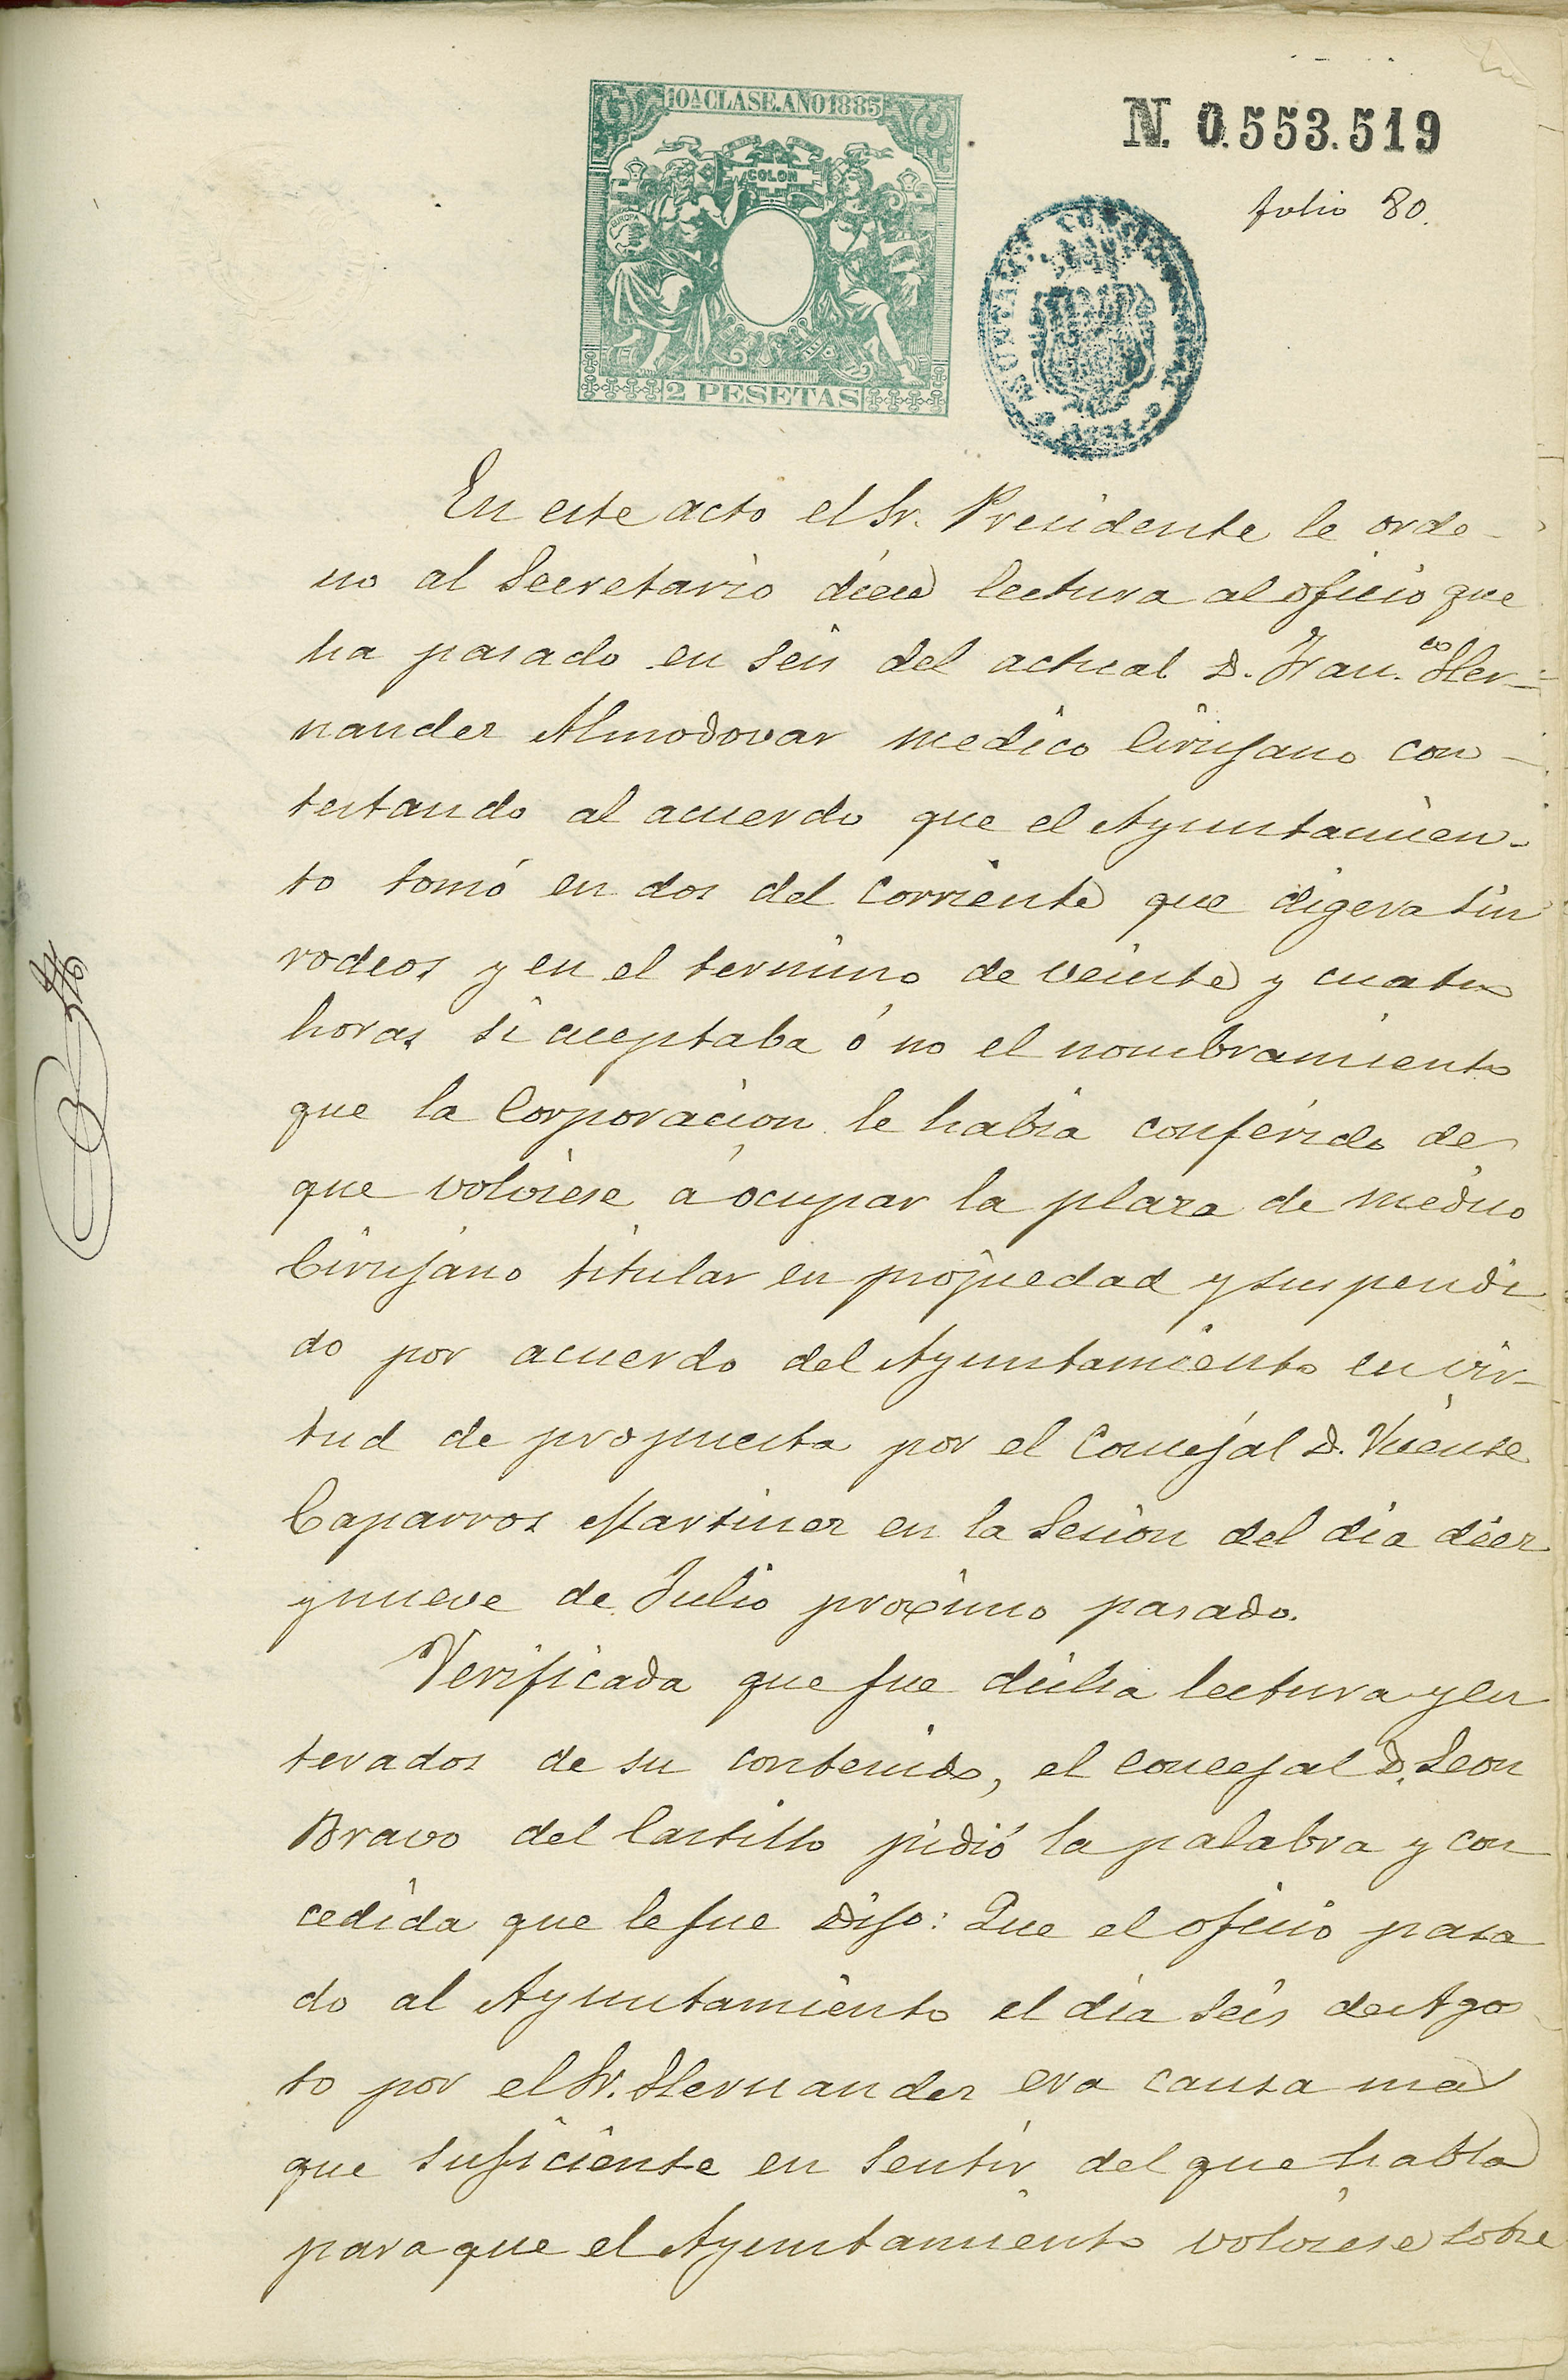 10ª CLASE. AÑO 1885
COLON
EUROPA
2 PESETAS
N. 0.553.519
folio 80.
En este acto el Sr. Presidente le orde-
no al Secretario diese lectura al oficio que
ha pasado en seis del actual D. Fran.co Her-
nandez Almodovar medico Cirujano con-
testando al acuerdo que el Ayuntamien-
to tomó en dos del corriente que digera sin
rodeos y en el termino de veinte y cuatro
horas si aceptaba ó no el nombramiento
que la Corporacion le habia conferido de
que volviese á ocupar la plaza de medico
Cirujano titular en propiedad y suspendi-
do por acuerdo del Ayuntamiento en vir-
tud de propuesta por el Concejal D. Vicente
Caparros Martinez en la Sesion del dia diez
y nueve de Julio proximo pasado.
Verificada que fue dicha lectura y en
terados de su contenido, el concejal D. Leon
Bravo del Castillo pidió la palabra y con
cedida que le fue Dijo: Que el oficio pasa
do al Ayuntamiento el dia seis de Agos
to por el Sr. Hernandez era causa mas
que suficiente en sentir del que habla
para que el Ayuntamiento volviese sobre